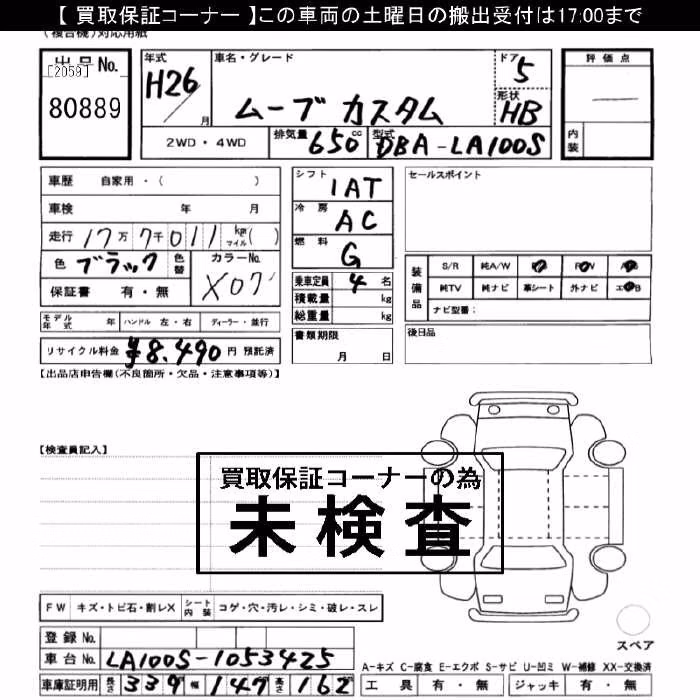 【 買取保証コーナー 】この車両の土曜日の搬出受付は17:00まで
(複合機)対応用紙
出品No.
[2059]
80889
年式
H26/月
車名・グレード
ムーブ カスタム
ドア
5
形状
HB
評価点
内装
2WD・4WD
排気量 650 cc
型式 DBA-LA100S
車歴 自家用・( )
車検 年 月
走行 17万 7千 011 km マイル ( )
色 ブラック 色替
カラーNo.
X07
保証書 有・無
シフト
1AT
冷房
AC
燃料
G
乗車定員 4 名
積載量 kg
総重量 kg
書類期限
月 日
セールスポイント
装備品
S/R 純A/W
純TV 純ナビ 革シート 外ナビ
ナビ型番:
後日品
モデル年式 年 ハンドル 左・右 ディーラー・並行
リサイクル料金 ¥8,490 円 預託済
【出品店申告欄(不良箇所・欠品・注意事項等)】
【検査員記入】
買取保証コーナーの為
未検査
FW キズ・トビ石・割レX シート内装 コゲ・穴・汚レ・シミ・破レ・スレ
登録No.
車台No. LA100S-1053425
車庫証明用 長さ 339 幅 147 高さ 162
スペア
A-キズ C-腐食 E-エクボ S-サビ U-凹ミ W-補修 XX-交換済
工具 有・無 ジャッキ 有・無